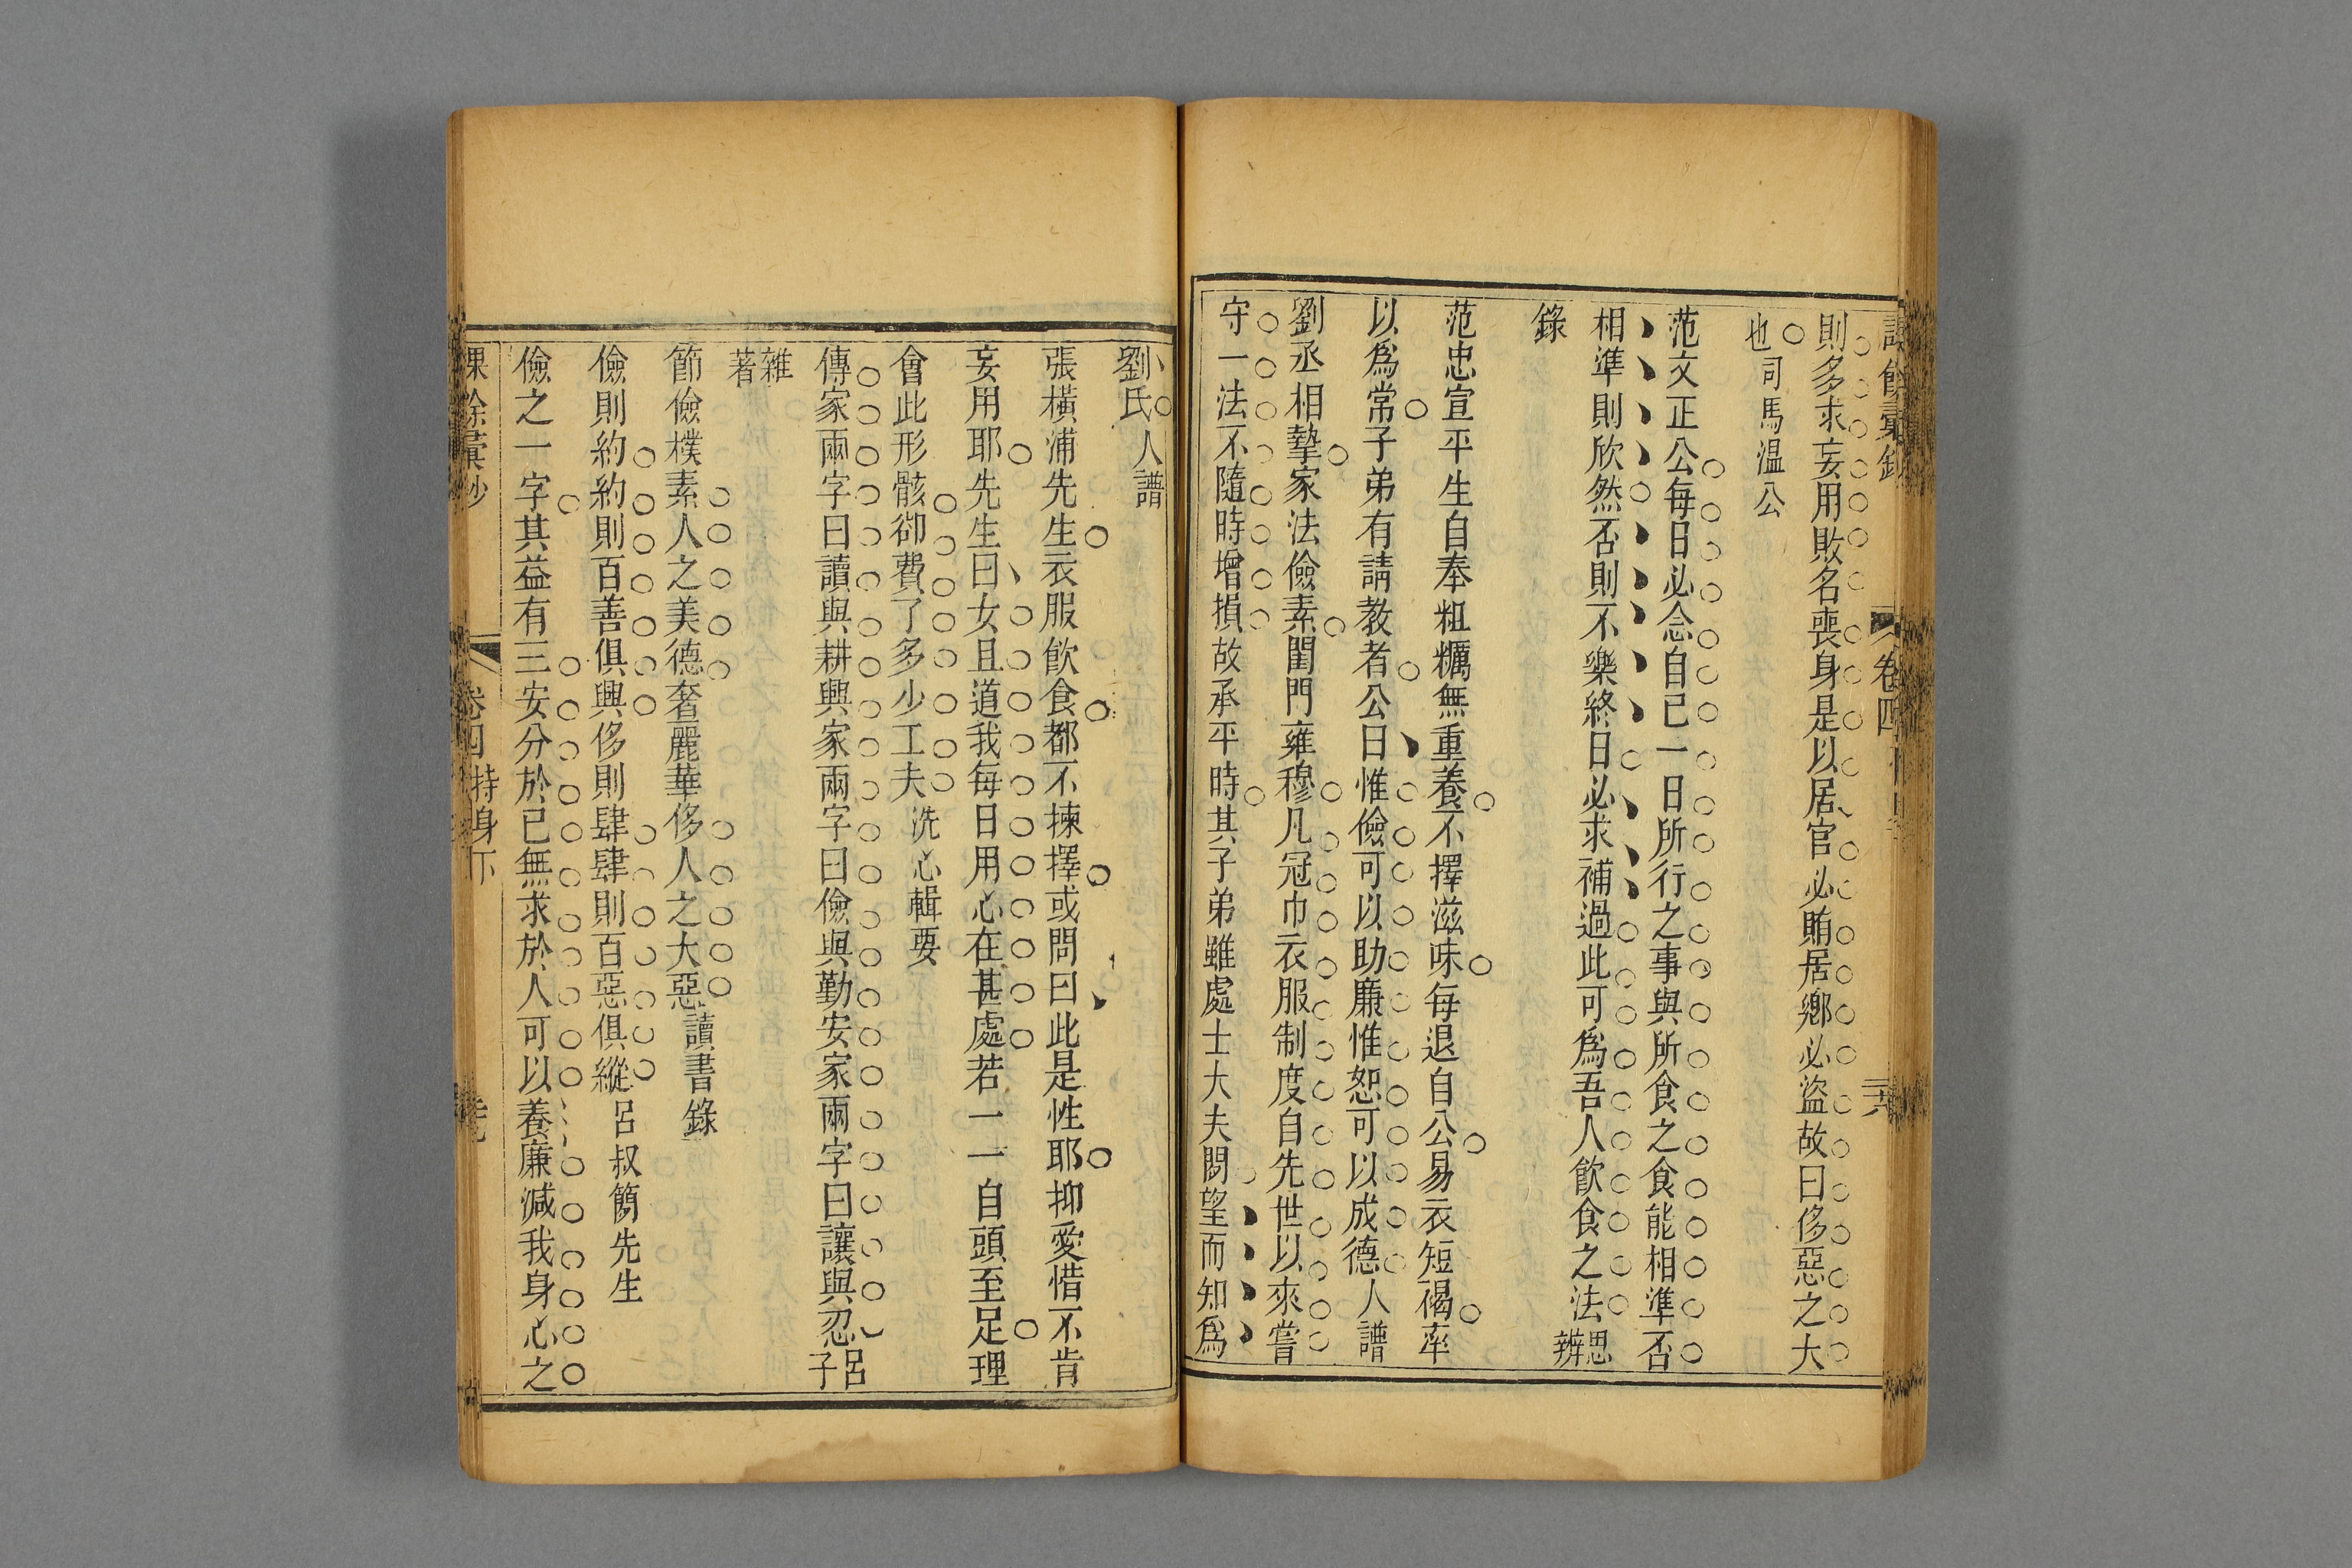 課餘彙鈔
卷四
則多求妄用敗名喪身是以居官必賄居鄉必盜故曰侈惡之大
也司馬溫公
范文正公每日必念自己一日所行之事與所食之食能相準否
相準則欣然否則不樂終日必求補過此可爲吾人飲食之法思辨
錄
范忠宣平生自奉粗糲無重養不擇滋味每退自公易衣短褐率
以爲常子弟有請教者公曰惟儉可以助廉惟恕可以成德人譜
劉丞相摯家法儉素閨門雍穆凡冠巾衣服制度自先世以來嘗
守一法不隨時增損故承平時其子弟雖處士大夫閒望而知爲
劉氏人譜
張橫浦先生衣服飲食都不揀擇或問曰此是性耶抑愛惜不肯
妄用耶先生曰女且道我每日用心在甚處若一一自頭至足理
會此形骸卻費了多少工夫洗心輯要
傳家兩字曰讀與耕興家兩字曰儉與勤安家兩字曰讓與忍呂子
雜著
節儉樸素人之美德奢麗華侈人之大惡讀書錄
儉則約約則百善俱興侈則肆肆則百惡俱縱呂叔簡先生
儉之一字其益有三安分於已無求於人可以養廉減我身心之
課餘彙鈔
卷四持身下